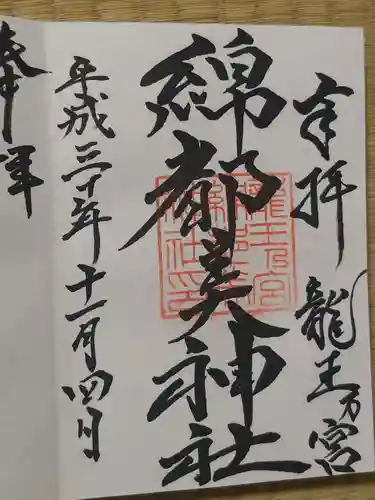 奉拝 龍王乃宮
綿都美神社
平成三十年十一月四日
奉拝